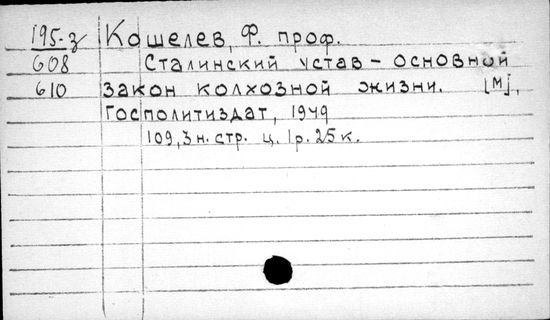 195-з Кошелев, Ф. проф.
608 Сталинский устав - основной
610 закон колхозной жизни. [М],
Госполитиздат, 1949
109,3 н. стр. ц. 1 р. 25 к.